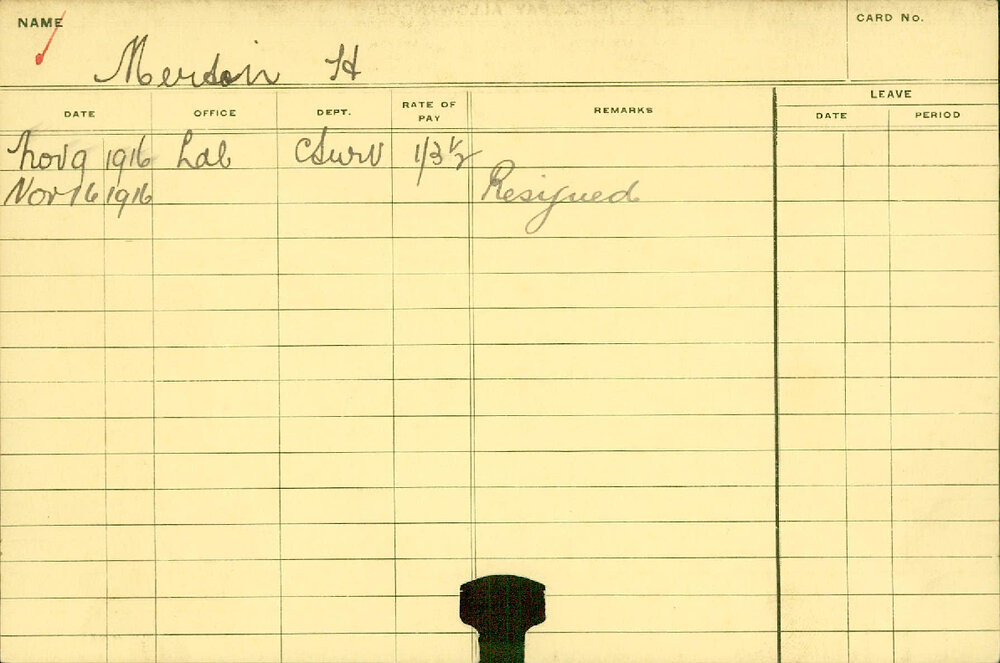 NAME
CARD No.
Merdoin H
DATE OFFICE DEPT. RATE OF PAY REMARKS LEAVE
DATE PERIOD
Nov 9 1916 Lab CSurv 1/3½
Nov 16 1916 Resigned